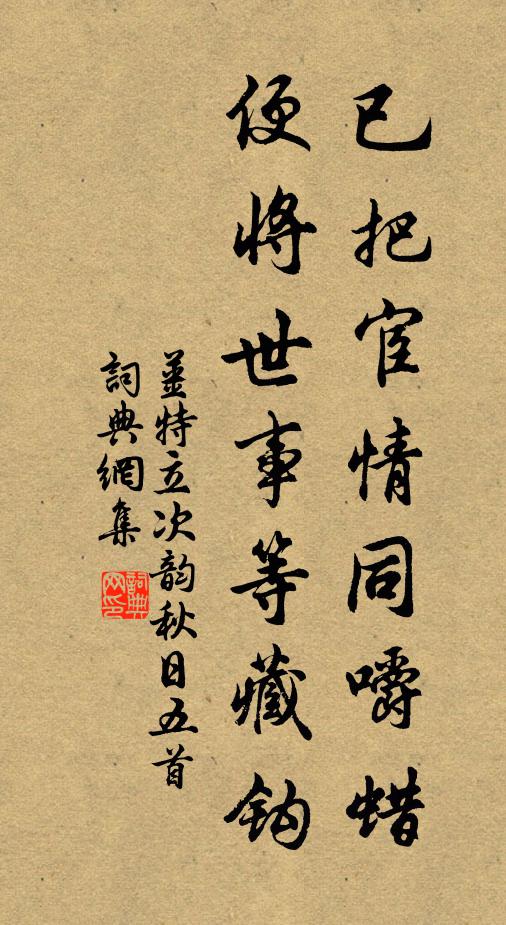 已把宦情同嚼蜡
便將世事等藏鈎
姜特立次韵秋日五首
詞典網集
詞典网印